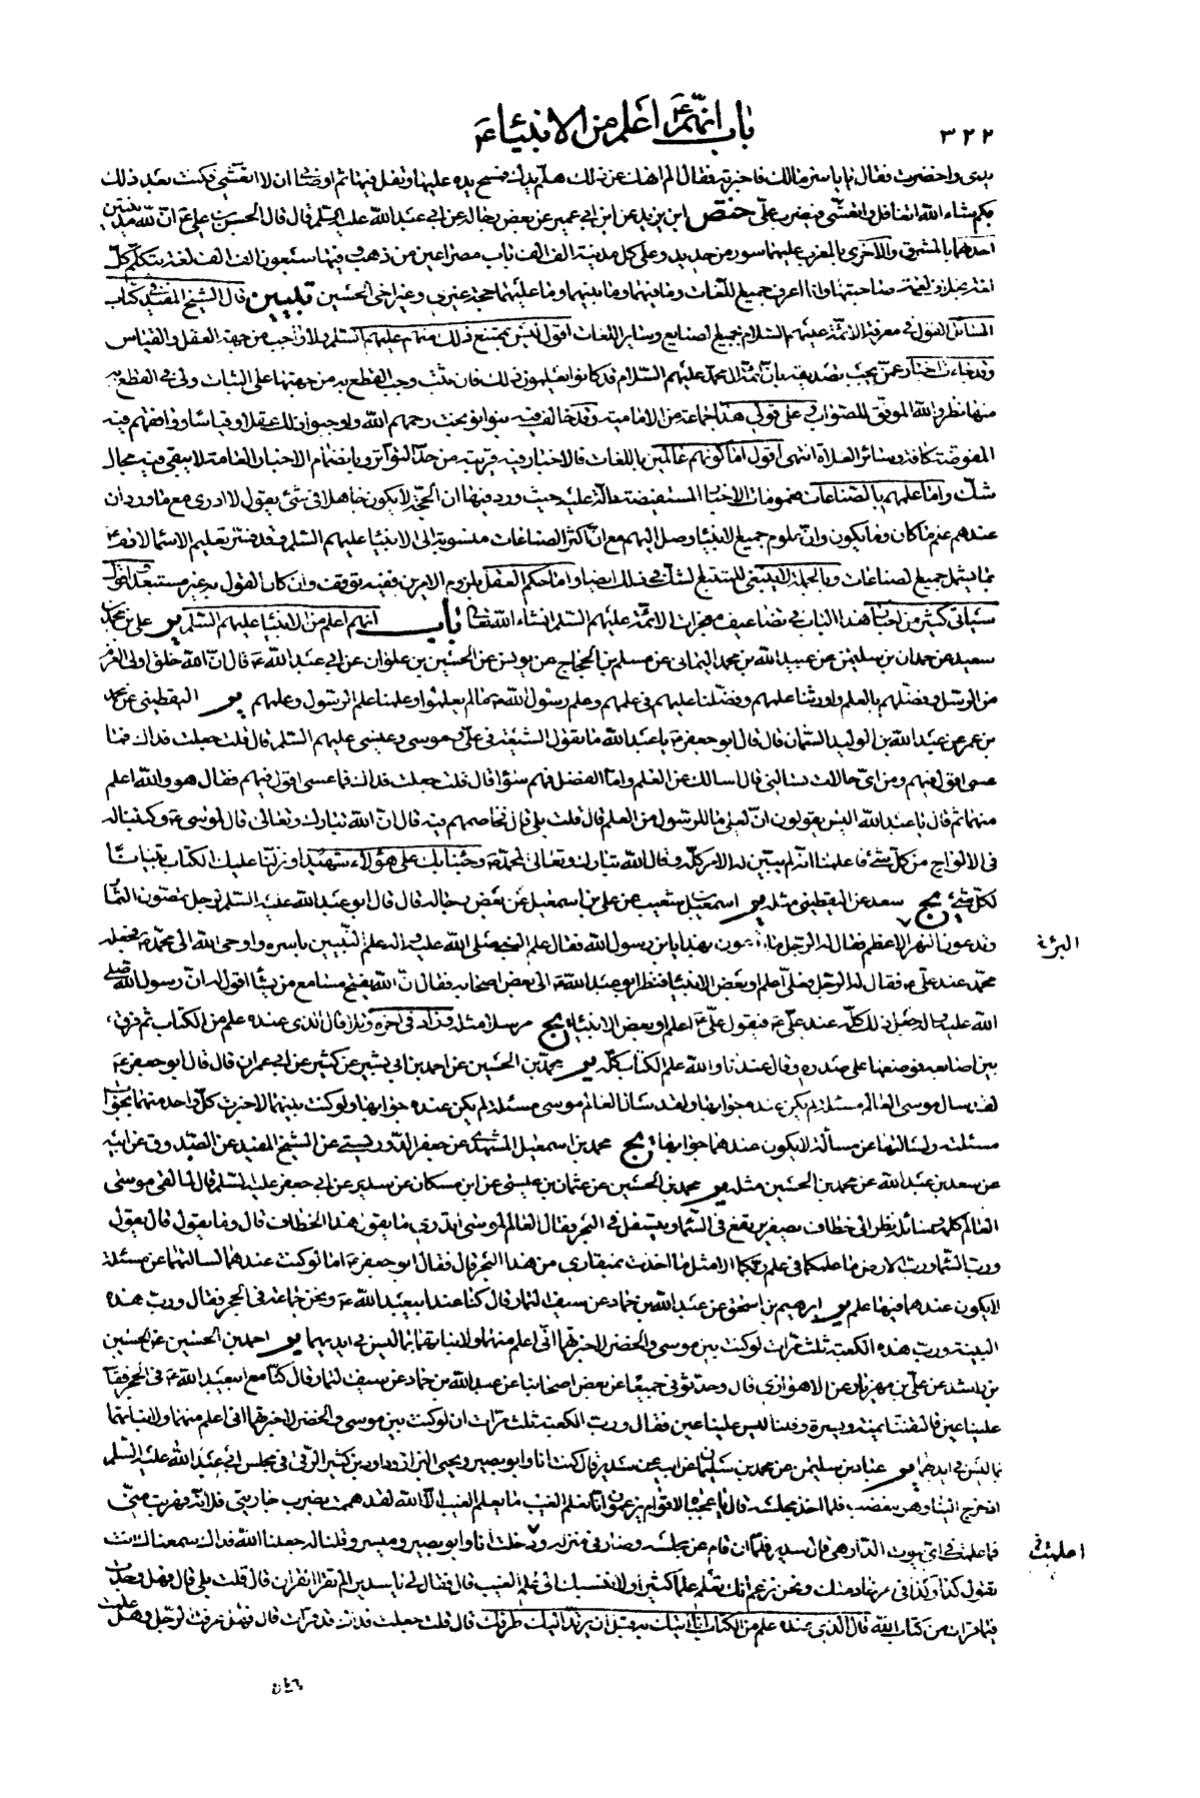 ٣٢٢
باب انهم ع اعلم من الانبياء ع
يدى واخضرت فقال لى يا ياسر مالك فاخبرته فقال الم انهك عن ذلك هلم يدك فمسح يده عليها وتفل فيها ثم اوصانى ان لا اتعشى فكنت بعد ذلك
كم شاء الله اتغافل واتعشى فيضرب على ختص ابن يزيد عن ابن ابى عمير عن بعض رجاله عن ابى عبد الله عليه السلم قال قال الحسن بن على ع ان لله مدينتين
احدهما بالمشرق والاخرى بالمغرب عليهما سور من حديد وعلى كل مدينة الف الف باب مصراعين من ذهب وفيها سبعون الف الف لغة يتكلم كل
لغة بخلاف لغة صاحبتها وانا اعرف جميع اللغات وما فيهما وما بينهما وما عليهما حجة غيرى وغير اخى الحسين تبيين قال الشيخ المفيد فى كتاب
المسائل القول فى معرفة الائمة عليهم السلام بجميع الصنايع وساير اللغات اقول ليس يمتنع ذلك منهم عليهم السلم ولا واجب من جهة العقل والقياس
وقد جاءت اخبار عمن يجب تصديقه بان ائمة ال محمد عليهم السلام قد كانوا يعلمون ذلك فان ثبت وجب القطع به من جهتها على الثبات ولى فى القطع به
منها نظر والله الموفق للصواب وعلى قولى هذا جماعة من الامامية وقد خالف فيه بنو نوبخت رحمهم الله واوجبوا ذلك عقلا وقياسا ووافقهم فيه
المفوضة كافة وسائر الغلاة انتهى اقول اما كونهم عالمين باللغات فالاخبار فيه قريبة من حد التواتر وبانضمام الاخبار العامة لا يبقى فيه مجال
شك واما علمهم بالصناعات فعمومات الاخبار المستفيضة دالة عليه حيث ورد فيها ان الحجة لا يكون جاهلا فى شئ يقول لا ادرى مع ما ورد ان
عندهم علم ما كان وما يكون وان علوم جميع الانبيا وصل اليهم مع ان اكثر الصناعات منسوبة الى الانبيا عليهم السلم وقد فسر تعليم الاسماء لادم ع
بما يشمل جميع الصناعات وبالجملة لا ينبغى للمتتبع الشك فى ذلك ايضا واما حكم العقل بلزوم الامرين ففيه توقف وان كان القول به غير مستبعد اقول
سياتى كثير من اخبار هذا الباب فى تضاعيف معجزات الائمة عليهم السلم انشاء الله تعالى باب انهم اعلم من الانبيا عليهم السلم ير على بن محمد بن
سعيد عن حمدان بن سليمن عن عبيد الله بن محمد اليمانى عن مسلم بن الحجاج عن يونس عن الحسين بن علوان عن ابى عبد الله ع قال ان الله خلق اولى العزم
من الرسل وفضلهم بالعلم واورثنا علمهم وفضلنا عليهم فى علمهم وعلم رسول الله ص ما لم يعلموا وعلمنا علم الرسول وعلمهم ير اليقطينى عن محمد
بن عمر عن عبد الله بن الوليد السمان قال قال ابو جعفر ع يا عبد الله ما يقول الشيعة فى على وموسى وعيسى عليهم السلم قال قلت جعلت فداك فما
عسى اقول فيهم ومن اى حالات تسالنى قال اسالك عن العلم واما الفضل فهم سواء قال قلت جعلت فداك فما عسى اقول فيهم فقال هو والله اعلم
منهما ثم قال يا عبد الله اليس يقولون ان لعلى ما للرسول من العلم قال قلت بلى قال فخاصمهم فيه قال ان الله تبارك وتعالى قال لموسى ع وكتبنا له
فى الالواح من كل شئ فاعلمنا انه لم يبين له الامر كله وقال الله تبارك وتعالى لمحمد ص وجئنا بك على هؤلاء شهيدا ونزلنا عليك الكتاب تبيانا
لكل شئ يج سعد عن اليقطينى مثله ير اسمعيل بن شعيب عن على بن اسمعيل عن بعض رجاله قال قال ابو عبد الله عليه السلم لرجل تمصون الثماد
البرية
وتدعون النهر الاعظم فقال له الرجل ما تعنون بهذا يا بن رسول الله فقال علم النبى صلى الله عليه واله علم النبيين باسره واوحى الله الى محمد ص فجعله
محمد عند على ع فقال له الرجل فعلى اعلم او بعض الانبيا فنظر ابو عبد الله ع الى بعض اصحابه فقال ان الله يفتح مسامع من يشا اقول له ان رسول الله صلى
الله عليه واله جعل ذلك كله عند على ع فيقول على ع اعلم او بعض الانبياء يج مرسلا مثله وزاد فى اخره وتلا قال الذى عنده علم من الكتاب ثم فرق
بين اصابعه فوضعها على صدره وقال عندنا والله علم الكتاب كله ير محمد بن الحسين عن احمد بن ابى بشير عن كثير عن ابى عمران قال قال ابو جعفر ع
لقد سال موسى العالم مسئلة لم يكن عنده جوابها ولقد سال العالم موسى مسئلة لم يكن عنده جوابها ولو كنت بينهما لاخبرت كل واحد منهما بجواب
مسئلته ولسالتهما عن مسألة لا يكون عندهما جوابها يج محمد بن اسمعيل المشهدى عن جعفر الدوريستى عن الشيخ المفيد عن الصدوق عن ابيه
عن سعد بن عبد الله عن محمد بن الحسين مثله ير محمد بن الحسين عن عثمان بن عيسى عن ابن مسكان عن سدير عن ابى جعفر عليه السلم قال لما لقى موسى
العالم كلمه وسائله نظر الى خطاف يصفر يرتفع فى السماء ويتسفل فى البحر فقال العالم لموسى اتدرى ما يقول هذا الخطاف قال وما يقول قال يقول
ورب السماء ورب الارض ما علمكما فى علم ربكما الا مثل ما اخذت بمنقارى من هذا البحر قال فقال ابو جعفر ع اما لو كنت عندهما لسالتهما عن مسئلة
لا يكون عندهما فيها علم ير ابرهيم بن اسحق عن عبد الله بن حماد عن سيف التمار قال كنا عند ابى عبد الله ع ونحن جماعة فى الحجر فقال ورب هذه
البنية ورب هذه الكعبة ثلث مرات لو كنت بين موسى والخضر لاخبرتهما انى اعلم منهما ولانباتهما بما ليس فى ايديهما ير احمد بن الحسين عن الحسين
بن راشد عن على بن مهزيار عن الاهوازى قال وحدثونى جميعا عن بعض اصحابنا عن عبد الله بن حماد عن سيف التمار قال كنا مع ابى عبد الله ع فى الحجر فقال
علينا عين فالتفتنا يمنة ويسرة وقلنا ليس علينا عين فقال ورب الكعبة ثلث مرات ان لو كنت بين موسى والخضر لاخبرتهما انى اعلم منهما ولانباتهما
بما ليس فى ايديهما ير عباد بن سليمن عن محمد بن سليمان عن ابيه عن سدير قال كنت انا وابو بصير ويحيى البزاز وداود بن كثير الرقى فى مجلس ابى عبد الله عليه السلم
اذ خرج الينا وهو مغضب فلما اخذ مجلسه قال يا عجباه لاقوام يزعمون انا نعلم الغيب ما يعلم الغيب الا الله لقد هممت بضرب جاريتى فلانة فهربت منى
اعلمت
فما علمت فى اى بيوت الدار هى قال سدير فلما ان قام عن مجلسه وصار فى منزله ودخلت انا وابو بصير وميسر وقلنا له جعلنا الله فداك سمعناك انت
تقول كذا وكذا فى امر خادمتك ونحن نزعم انك تعلم علما كثيرا ولا ننسبك الى علم الغيب قال فقال لى يا سدير الم تقرا القران قال قلت بلى قال فهل وجدت
فيما قرات من كتاب الله قال الذى عنده علم من الكتاب انا اتيك به قبل ان يرتد اليك طرفك قال قلت جعلت فداك قد قرات قال فهل عرفت الرجل وهل علمت